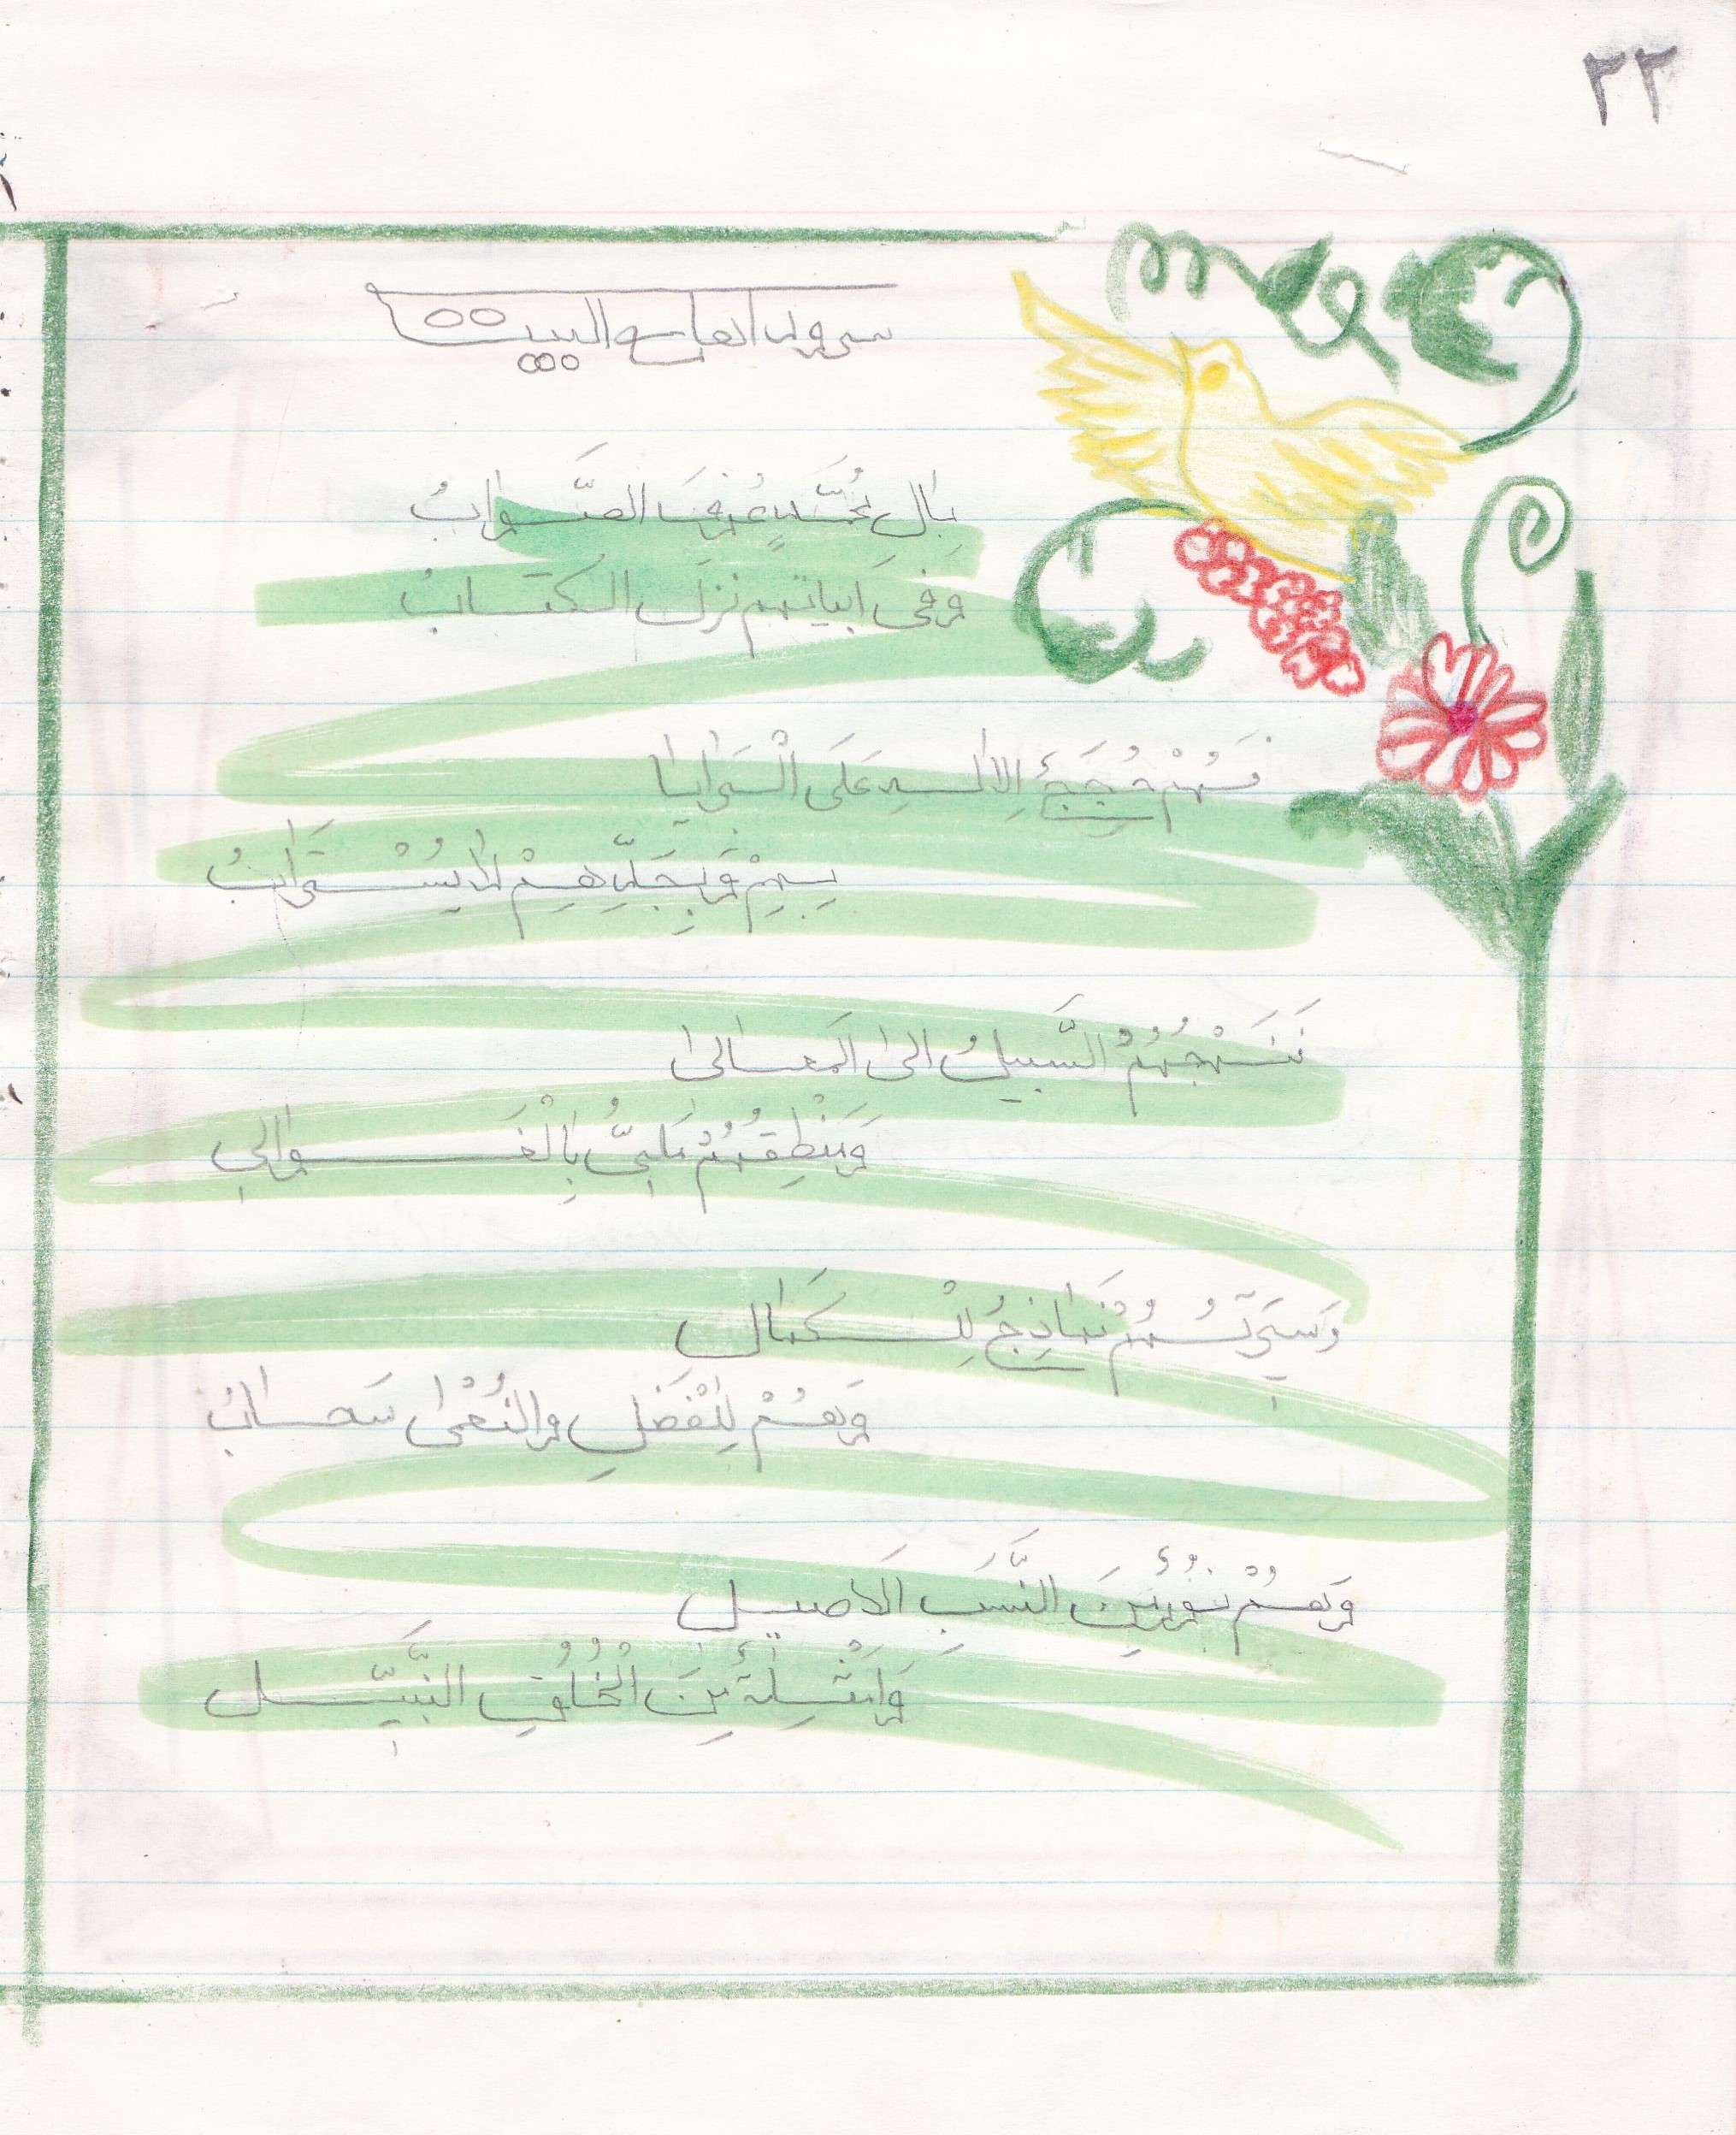 ٣٣
سرود اهل البيت
بِالِ مُحَمَّدٍ عُرِفَ الصَّوابُ
وَفى اَبياتِهِم نَزَلَ الكتابُ
فَهُمْ حُجَجُ الاِلهِ عَلَى الْبَرايا
بِهِمْ وَبِجَدِّهِمْ لا يُسْتَرابُ
فَنَهْجُهُمُ السَّبيلُ الى المَعالى
وَسيرَتُهُمْ نَماذِجُ لِلْكَمالِ
وَهُمْ لِلْفَضْلِ والنُّعْمى سَحابُ
وَهُمْ نُورٌ مِنَ النَّسَبِ الاَصيل
وَاَمْثِلَةٌ مِنَ الْخُلُقِ النَّبيل